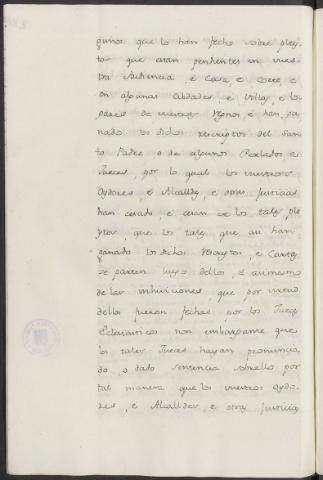 gunos que lo han fecho sobre pley
tos que eran pendientes en vues
tra Audiencia, é Casa, é Corte, é
en algunas Cibdades, é Villas, é lo
gares de vuestros Regnos é han ga
nado los dichos rescriptos del San
to Padre, o de algunos Perlados é
Jueces, por lo qual los vuestros
Oydores, é Alcalldes, é otras Justicias
han cesado, é cesan de los tales ple
ytos, que los tales que asi han
ganado los dichos Rescriptos, é Cartas
se parten luego dellos, é asimesmo
de las inhiviciones, que por virtud
dellos fueron fechas por los Jueces
Eclesiasticos non embargante que
los tales Jueces hayan pronuncia
do, o dado sentencia sobrello por
tal manera que los vuestros Oydo
res, é Alcalldes, é otras Justicias